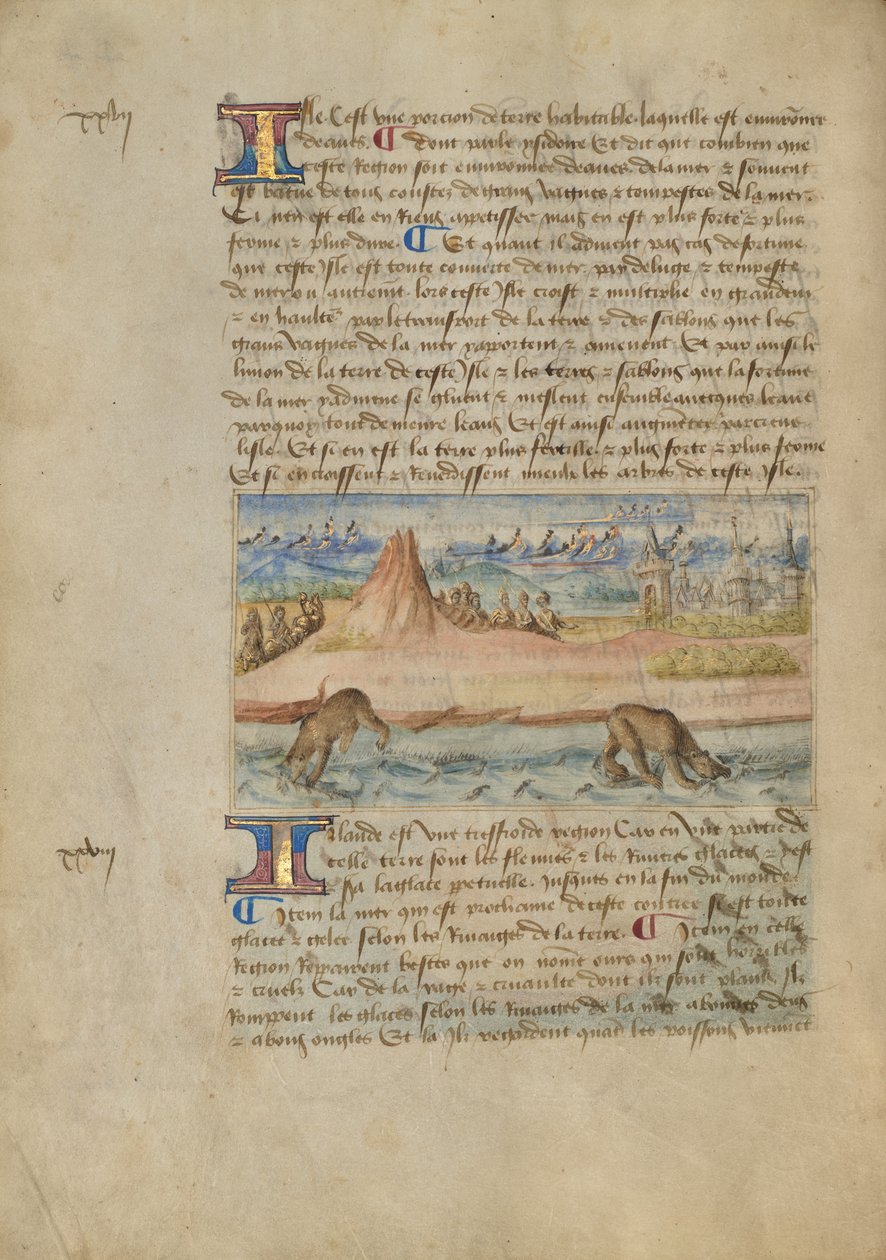 xxvii
Isle. C'est une porcion de terre habitable. laquelle est environnee
deaues. Dont parle ysidore Et dit que combien que
ceste Region soit environnee deaues. de la mer & souvent
est batue de tous coustez de grans vagues & tempestes de la mer.
Si nen est elle en Riens appetissee mais en est plus forte & plus
ferme & plus dure. Et quant il advient par cas de fortune
que ceste Isle est toute couverte de mer. par deluge & tempeste
de mer ou autrement. lors ceste Isle croist & multiplie en grandeur
& en haulte par le transport de la terre & des sablons que les
grans vagues de la mer y apportent & amenent. Et par ainsi le
limon de la terre de ceste Isle & les terres & sablons que la fortune
de la mer y admene se gluent & meslent ensemble avecques leaue
parquoy tout demeure leans Et est ainsi augmentee
lisle. Et si en est la terre plus fertille & plus forte & plus ferme
Et si en croissent & Reverdissent mieulx les arbres de ceste Isle.
xxviii
Irlande est une tresfroide region Car en une partie de
celle terre sont les fleuves & les Rivieres glacees & yest
la glace perpetuelle. Jusques en la fin du monde.
Item la mer qui est prochaine de ceste contree si est toute
glacee & gelee selon les Rivaiges de la terre. Item en celle
Region Repairent bestes que on nomme ours qui sont horribles
& cruelz Car de la rage & cruaulte dont ilz sont plains Ilz
Romppent les glaces selon les Rivaiges de la mer a bonnes dens
& a bons ongles Et la Ilz regardent quant les poissons viennent